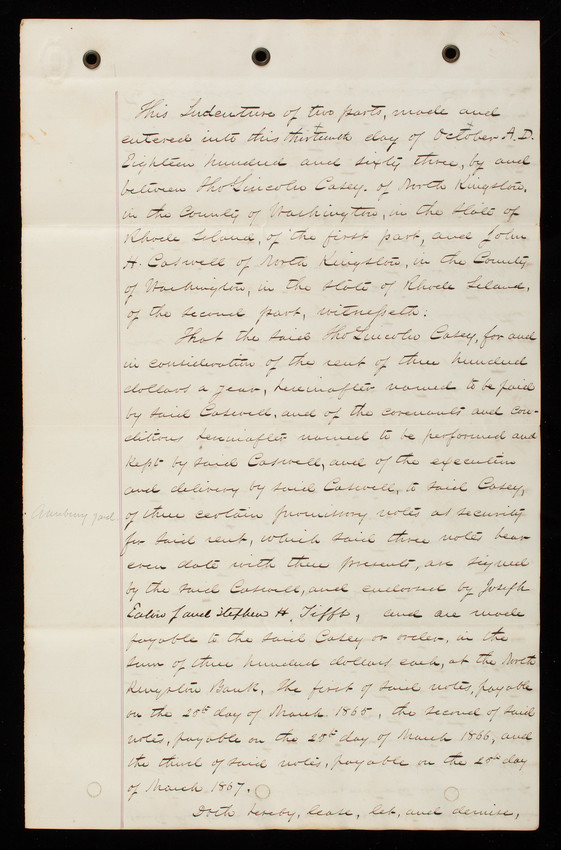 This Indenture of two parts, made and
entered into this thirteenth day of October A.D.
Eighteen hundred and sixty three, by and
between Tho Lincoln Casey. of North Kingston.
in the County of Washington, in the State of
Rhode Island, of the first part, and John
H. Caswell of North Kingston, in the County
of Washington, in the State of Rhode Island,
of the second part, witnesseth:
That the said Tho Lincoln Casey, for and
in consideration of the rent of three hundred
dollars a year, hereinafter named to be paid
by said Caswell, and of the covenants and con-
ditions hereinafter named to be performed and
kept by said Caswell, and of the execution
and delivery by said Caswell, to said Casey,
of three certain promissory notes as security
for said rent, which said three notes bear
even date with these presents, are signed
by the said Caswell, and endorsed by Joseph
Eaton J and Stephen H. Tifft, and are made
payable to the said Casey or order, in the
sum of three hundred dollars each, at the North
Kingston Bank, the first of said notes, payable
on the 20th day of March 1865, the second of said
notes, payable on the 20th day of March 1866, and
the third of said notes, payable on the 20th day
of March 1867.
Doth hereby, lease, let, and demise,